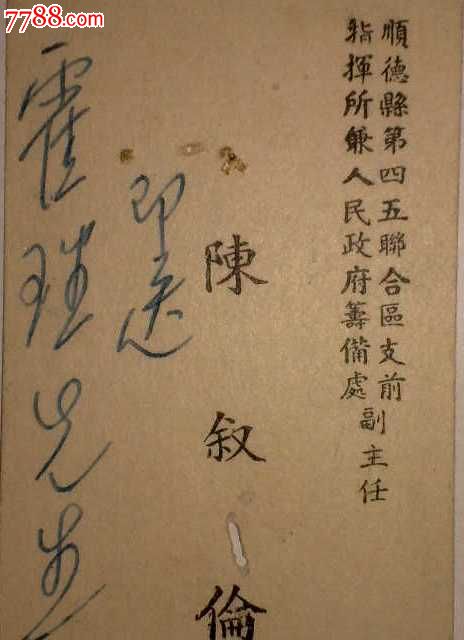 7788.com
順德縣第四五聯合區支前
指揮所兼人民政府籌備處
副主任
陳叙倫
即送
霍先生